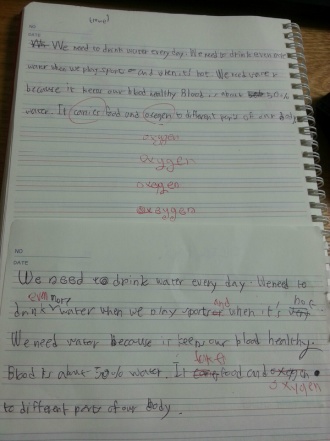 NO
DATE
We need to drink water every day. We need to drink even more
water when we play sports and when it's hot. We need water
because it keeps our blood healthy. Blood is about 50%
water. It carries food and oxegen to different parts of our body
oxygen
oxygen
oxygen
oxygen
NO
DATE
We need to drink water every day. We need to
even more and hot
drink water when we play sports or when it's very
We need water because it keeps our blood healthy.
Blood is about 50% water. It food and
oxygen
to different parts of our body.